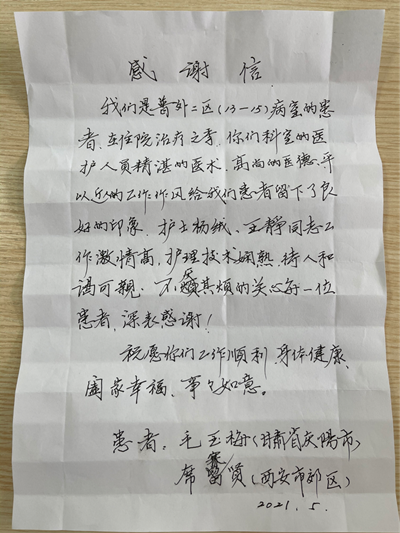 感谢信
我们是普外二区(13-15)病室的患
者,在住院治疗之季,你们科室的医
护人员精湛的医术,高尚的医德,平
以近的工作作风给我们患者留下了良
好的印象,护士杨绒、王静同志工
作激情高,护理技术娴熟,待人和
谒可亲,不厌其烦的关心每一位
患者,深表感谢!
祝愿你们工作顺利,身体健康,
阖家幸福,事事如意。
患者:毛玉梅(甘肃省庆阳市)
席赛贤(西安市郊区)
2021.5.